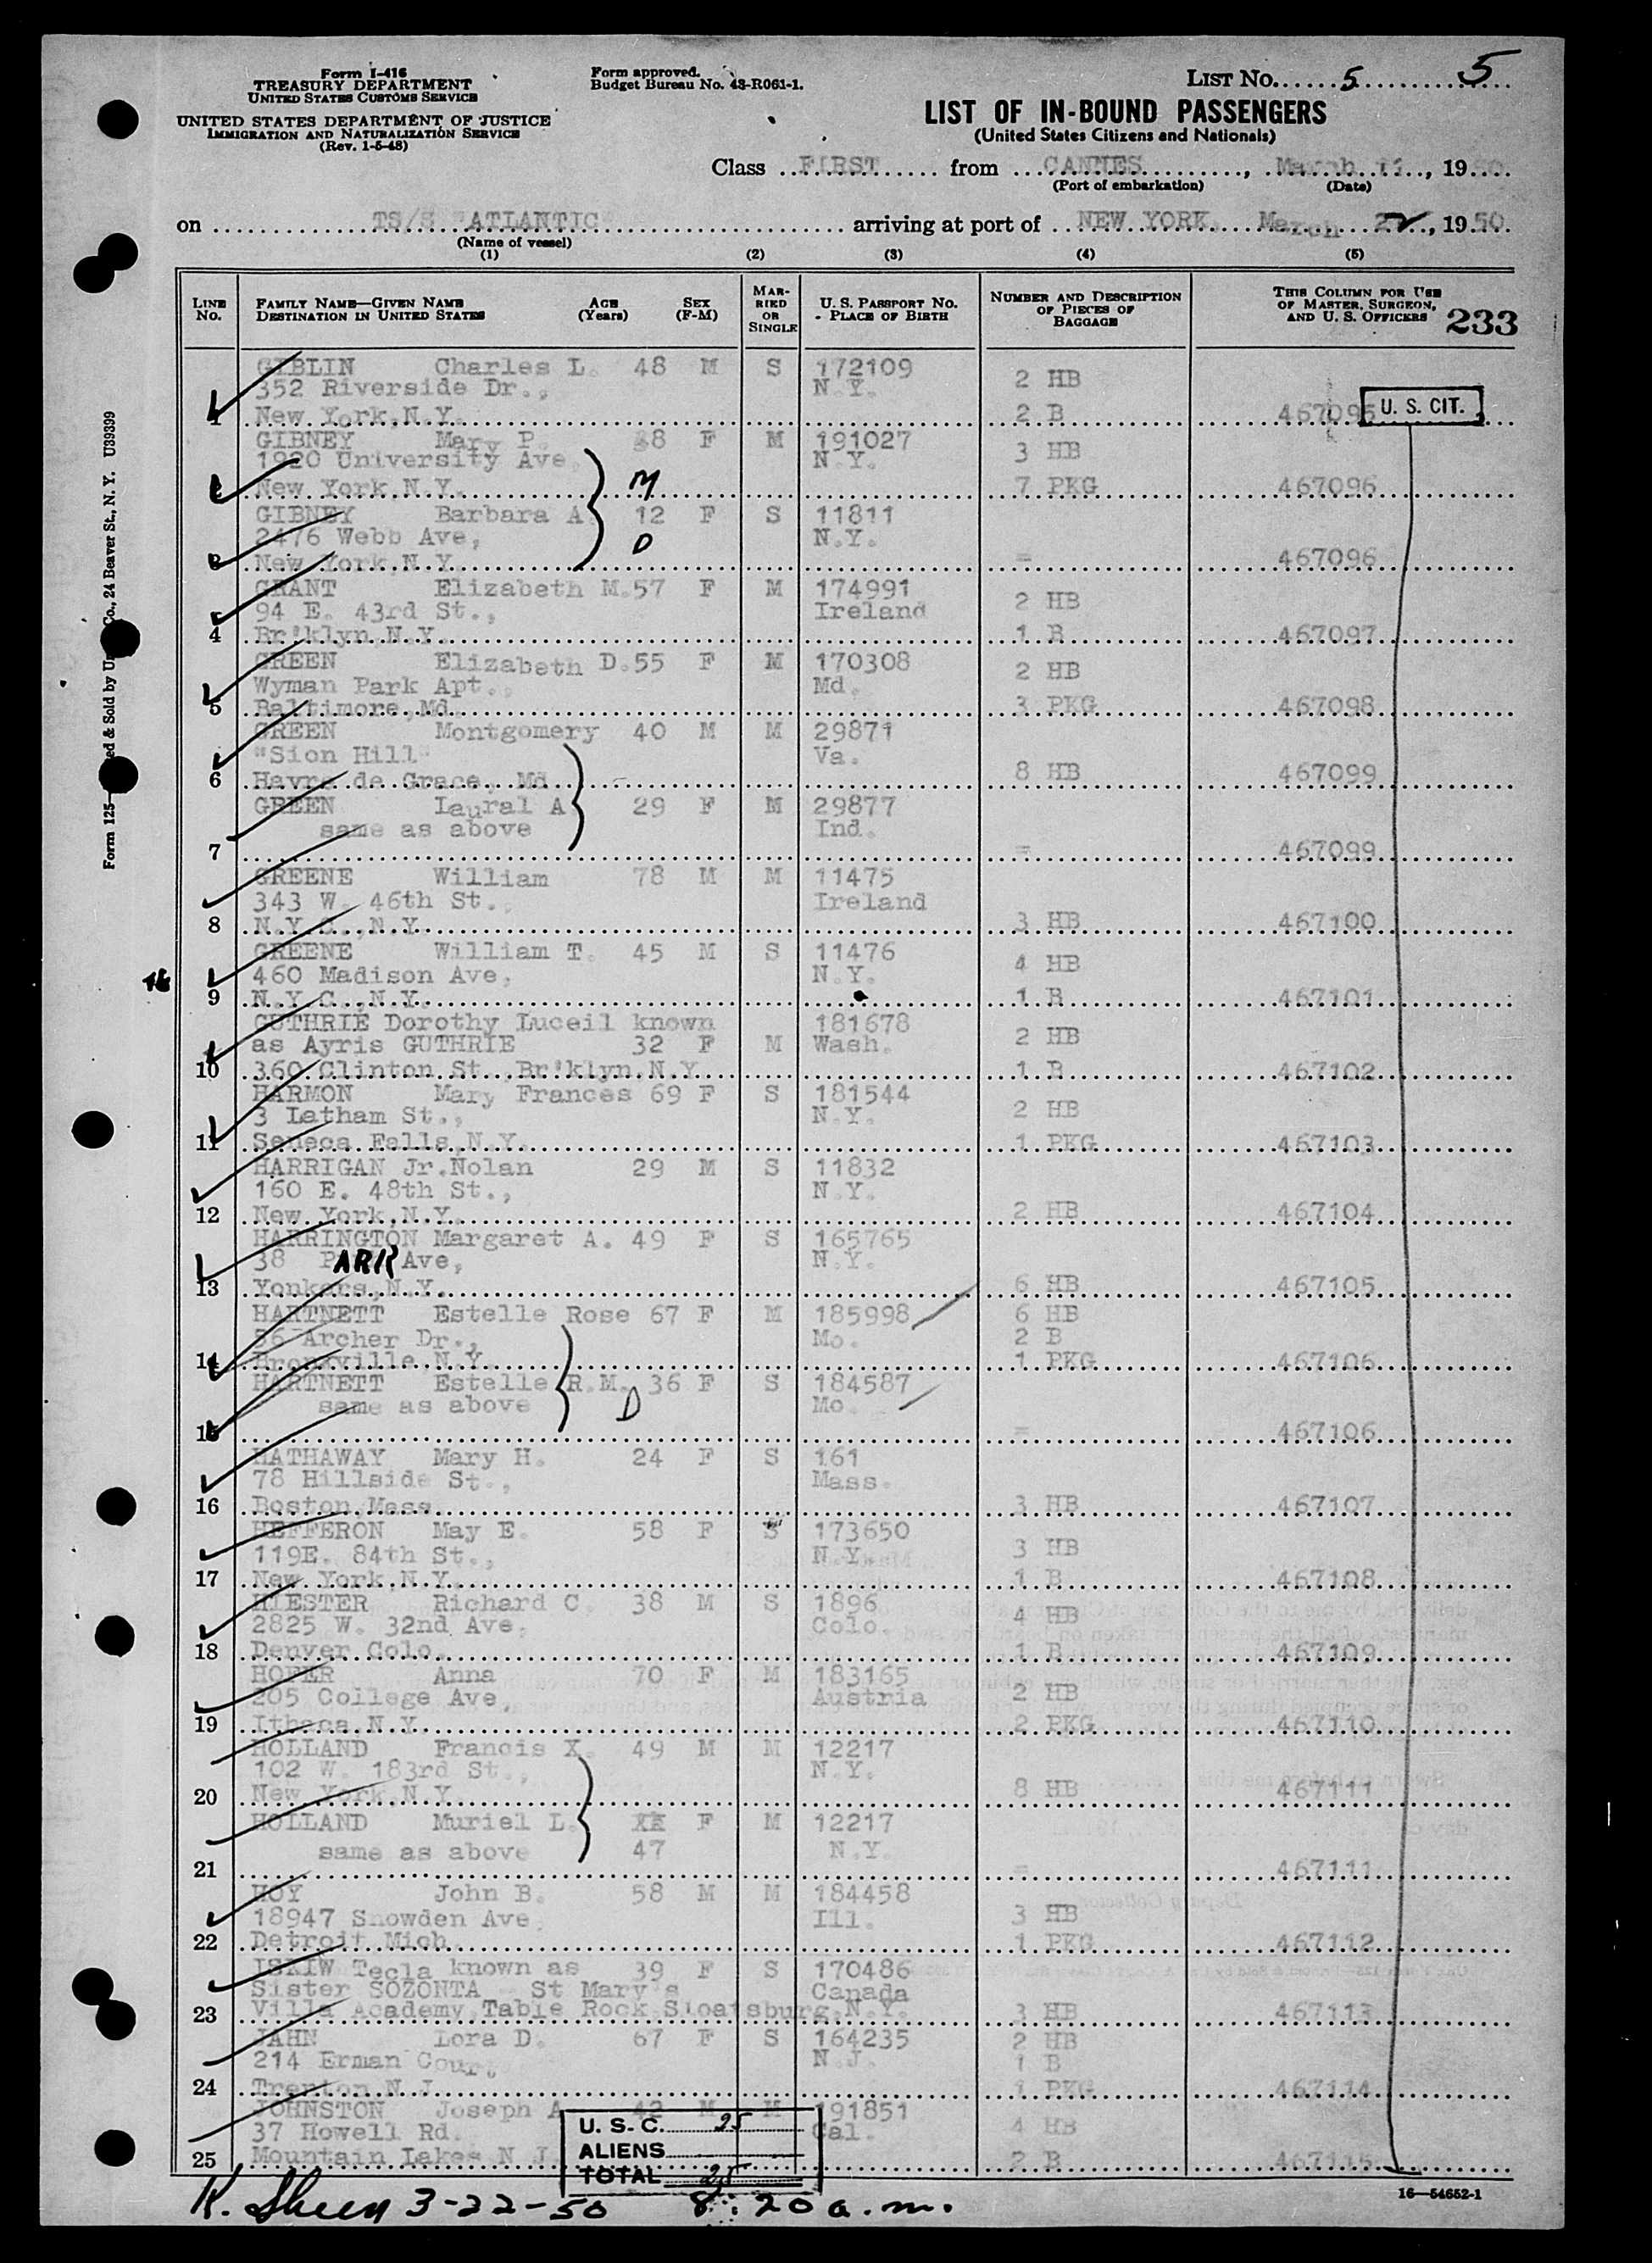 Form I-416
TREASURY DEPARTMENT
UNITED STATES CUSTOMS SERVICE
UNITED STATES DEPARTMENT OF JUSTICE
IMMIGRATION AND NATURALIZATION SERVICE
(Rev. 1-5-48)
Form approved.
Budget Bureau No. 43-R061-1.
LIST NO. 5 5
LIST OF IN-BOUND PASSENGERS
(United States Citizens and Nationals)
Class FIRST from CANNES, March, 1950.
(Port of embarkation) (Date)
on TS/S "ATLANTIC" arriving at port of NEW YORK March 22, 1950.
(Name of vessel)
(1) (2) (3) (4) (5)
LINE No. FAMILY NAME—GIVEN NAME DESTINATION IN UNITED STATES AGE (Years) SEX (F-M) MARRIED OR SINGLE U. S. PASSPORT NO. - PLACE OF BIRTH NUMBER AND DESCRIPTION OF PIECES OF BAGGAGE THIS COLUMN FOR USE OF MASTER, SURGEON, AND U. S. OFFICERS 233
GIBLIN Charles L. 48 M S 172109
352 Riverside Dr., N.Y. 2 HB
1 New York,N.Y. 2 B 467095 U. S. CIT.
GIBNEY Mary P. 38 F M 191027
1920 University Ave, N.Y. 3 HB
2 New York,N.Y. M 7 PKG 467096
GIBNEY Barbara A. 12 F S 11811
2476 Webb Ave, D N.Y.
3 New York,N.Y. = 467096
GRANT Elizabeth M. 57 F M 174991
94 E. 43rd St., Ireland 2 HB
4 Br'klyn,N.Y. 1 B 467097
GREEN Elizabeth D. 55 F M 170308
Wyman Park Apt., Md. 2 HB
5 Baltimore,Md. 3 PKG 467098
GREEN Montgomery 40 M M 29871
"Sion Hill" Va.
6 Havre de Grace, Md. 8 HB 467099
GREEN Laural A 29 F M 29877
same as above Ind.
7 = 467099
GREENE William 78 M M 11475
343 W. 46th St., Ireland
8 N.Y.C.,N.Y. 3 HB 467100
GREENE William T. 45 M S 11476
460 Madison Ave, N.Y. 4 HB
9 N.Y.C.,N.Y. 1 B 467101
GUTHRIE Dorothy Luceil known 181678
as Ayris GUTHRIE 32 F M Wash. 2 HB
10 360 Clinton St.,Br'klyn,N.Y. 1 B 467102
HARMON Mary Frances 69 F S 181544
3 Latham St., N.Y. 2 HB
11 Seneca Falls,N.Y. 1 PKG 467103
HARRIGAN Jr.Nolan 29 M S 11832
160 E. 48th St., N.Y.
12 New York,N.Y. 2 HB 467104
HARRINGTON Margaret A. 49 F S 165765
38 PARK Ave, N.Y.
13 Yonkers,N.Y. 6 HB 467105
HARTNETT Estelle Rose 67 F M 185998 6 HB
56 Archer Dr., Mo. 2 B
14 Bronxville,N.Y. 1 PKG 467106
HARTNETT Estelle R.M. 36 F S 184587
same as above D Mo.
15 = 467106
HATHAWAY Mary H. 24 F S 161
78 Hillside St., Mass.
16 Boston,Mass. 3 HB 467107
HEFFERON May E. 58 F S 173650
119E. 84th St., N.Y. 3 HB
17 New York,N.Y. 1 B 467108
HIESTER Richard C. 38 M S 1896
2825 W. 32nd Ave, Colo. 4 HB
18 Denver Colo. 1 B 467109
HOFER Anna 70 F M 183165
205 College Ave, Austria 2 HB
19 Ithaca,N.Y. 2 PKG 467110
HOLLAND Francis X. 49 M M 12217
102 W. 183rd St., N.Y.
20 New York,N.Y. 8 HB 467111
HOLLAND Muriel L. F M 12217
same as above 47 N.Y.
21 = 467111
HOY John B. 58 M M 184458
18947 Snowden Ave, Ill. 3 HB
22 Detroit Mich. 1 PKG 467112
ISKIW Tecla known as 39 F S 170486
Sister SOZONTA St Mary's Canada
23 Villa Academy,Table Rock,Sloatsburg,N.Y. 3 HB 467113
JAHN Lora D. 67 F S 164235 2 HB
214 Erman Court N.J. 1 B
24 Trenton N J 1 PKG 467114
JOHNSTON Joseph A 42 M M 191851
37 Howell Rd. Cal. 4 HB
25 Mountain Lakes N J 2 B 467115
U. S. C. 25
ALIENS
TOTAL 25
K. Sheen 3-22-50 8:20 a.m.
16—54652-1